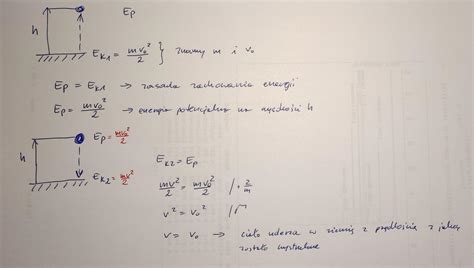 Ep
h
E_K1 = mv₀²/2 } znamy m i v₀
Ep = E_K1 → zasada zachowania energii
Ep = mv₀²/2 → energia potencjalna na wysokości h
Ep = mv₀²/2
h
E_K2 = mv²/2
E_K2 = Ep
mv²/2 = mv₀²/2 / · 2/m
v² = v₀² /√
v = v₀ → ciało uderza w ziemię z prędkością z jaką
zostało wystrzelone